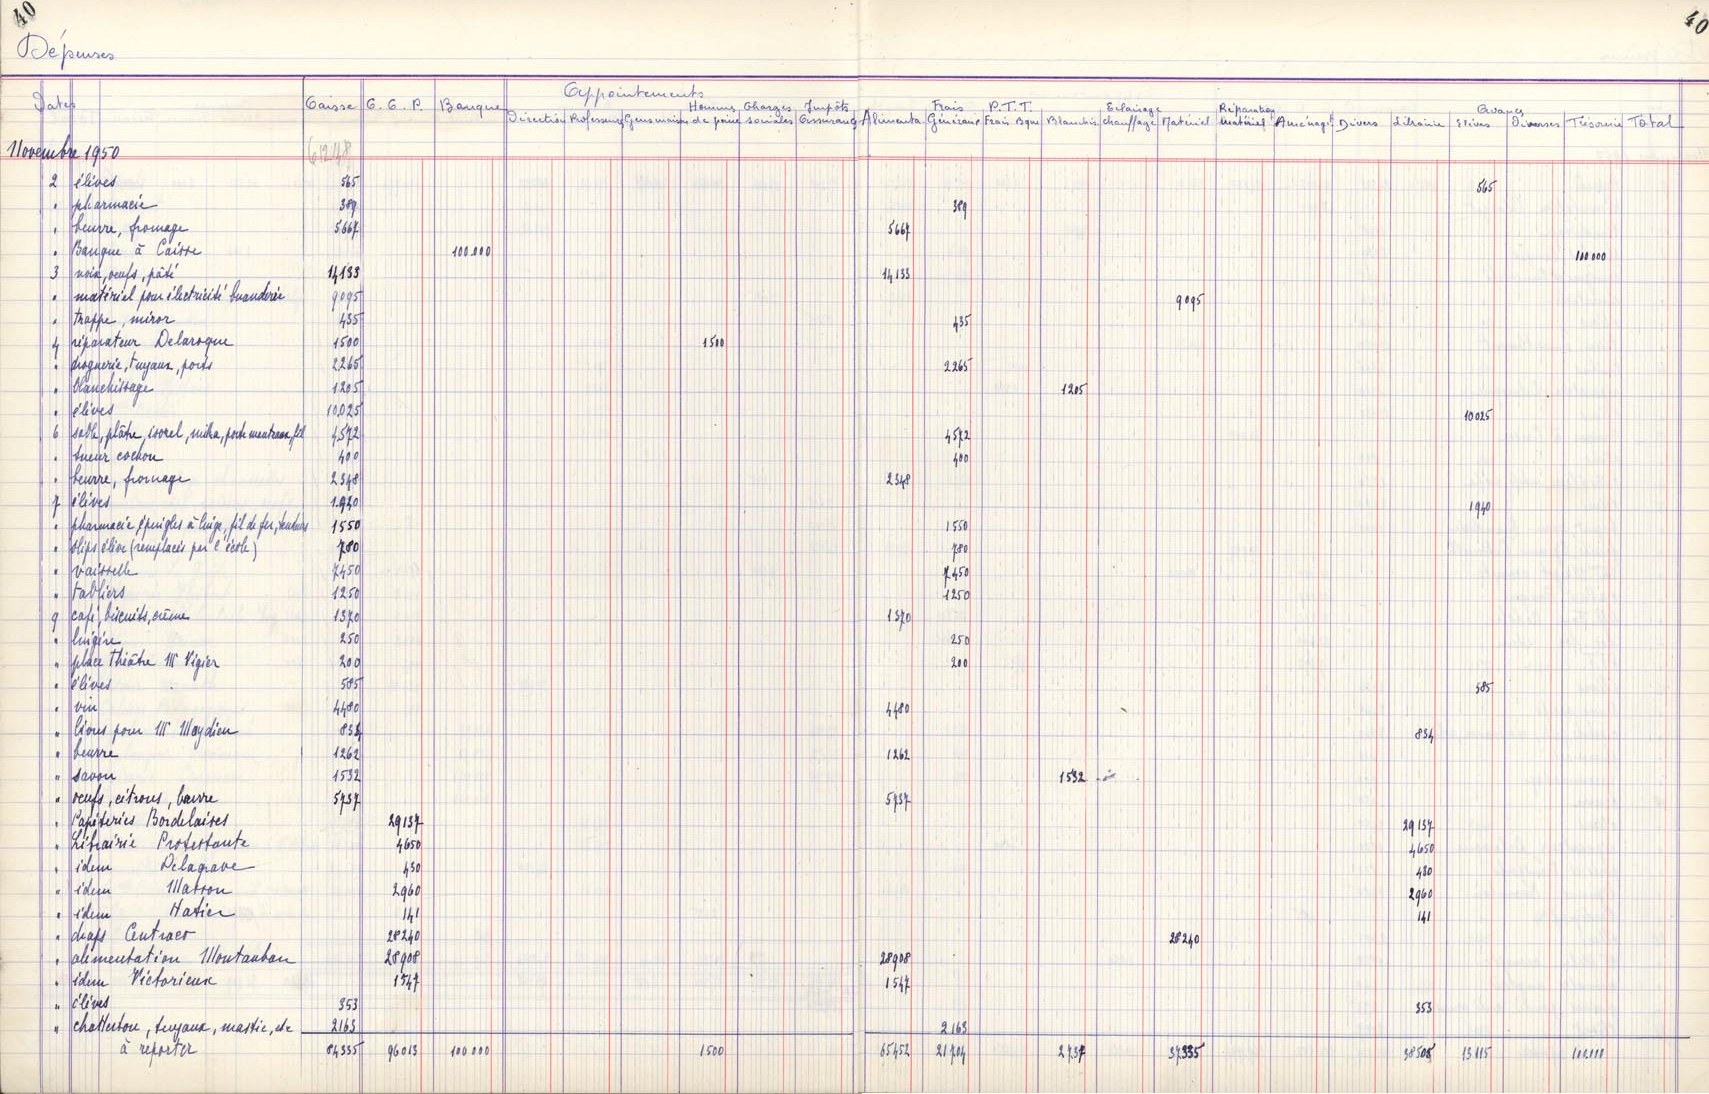 40 40
Dépenses
Appointements
Dates Caisse C.C.P. Banque Direction Professeurs Gens maison Homme de peine Charges sociales Impôts Assurances Alimenta. Frais Généraux P.T.T. Frais Bque Blanchis. Eclairage chauffage Matériel Réparation matériel Aménagt Divers Librairie Avances Elèves Diverses Trésorerie Total
Novembre 1950 61248
2 élèves 565 565
" pharmacie 389 389
" beurre, fromage 5667 5667
" Banque à Caisse 100.000 100 000
3 noix, oeufs, pâté 14133 14133
" matériel pour électricité buanderie 9095 9095
" trappe, miror 435 435
4 réparateur Delaroque 1500 1500
" droguerie, tuyaux, pots 2265 2265
" blanchissage 1205 1205
" élèves 10025 10025
6 sable, plâtre, isorel, porte manteaux, 4572 4572
" tueur cochon 400 400
" beurre, fromage 2348 2348
7 élèves 1940 1940
" pharmacie, épingles à linge, fil de fer, 1550 1550
" slips élève (remplacés par l'école) 780 780
" vaisselle 7450 7450
" tabliers 1250 1250
9 café, biscuits, crème 1370 1370
" lingère 250 250
" place Théâtre Mr Vigier 200 200
" élèves 585 585
" vin 4480 4480
" livres pour Mr Moydieu 834 834
" beurre 1262 1262
" savon 1532 1532
" oeufs, citrons, beurre 5737 5737
" Papéteries Bordelaises 29137 29137
" Librairie Protestante 4650 4650
" idem Delagrave 430 430
" idem Masson 2960 2960
" idem Hatier 141 141
" draps Centraco 28240 28240
" alimentation Montauban 28908 28908
" idem Victorieux 1547 1547
" élèves 353 353
" chatterton, tuyaux, mastic, etc 2163 2163
à reporter 84335 96013 100 000 1500 65452 21704 2737 37335 38505 13115 100.000